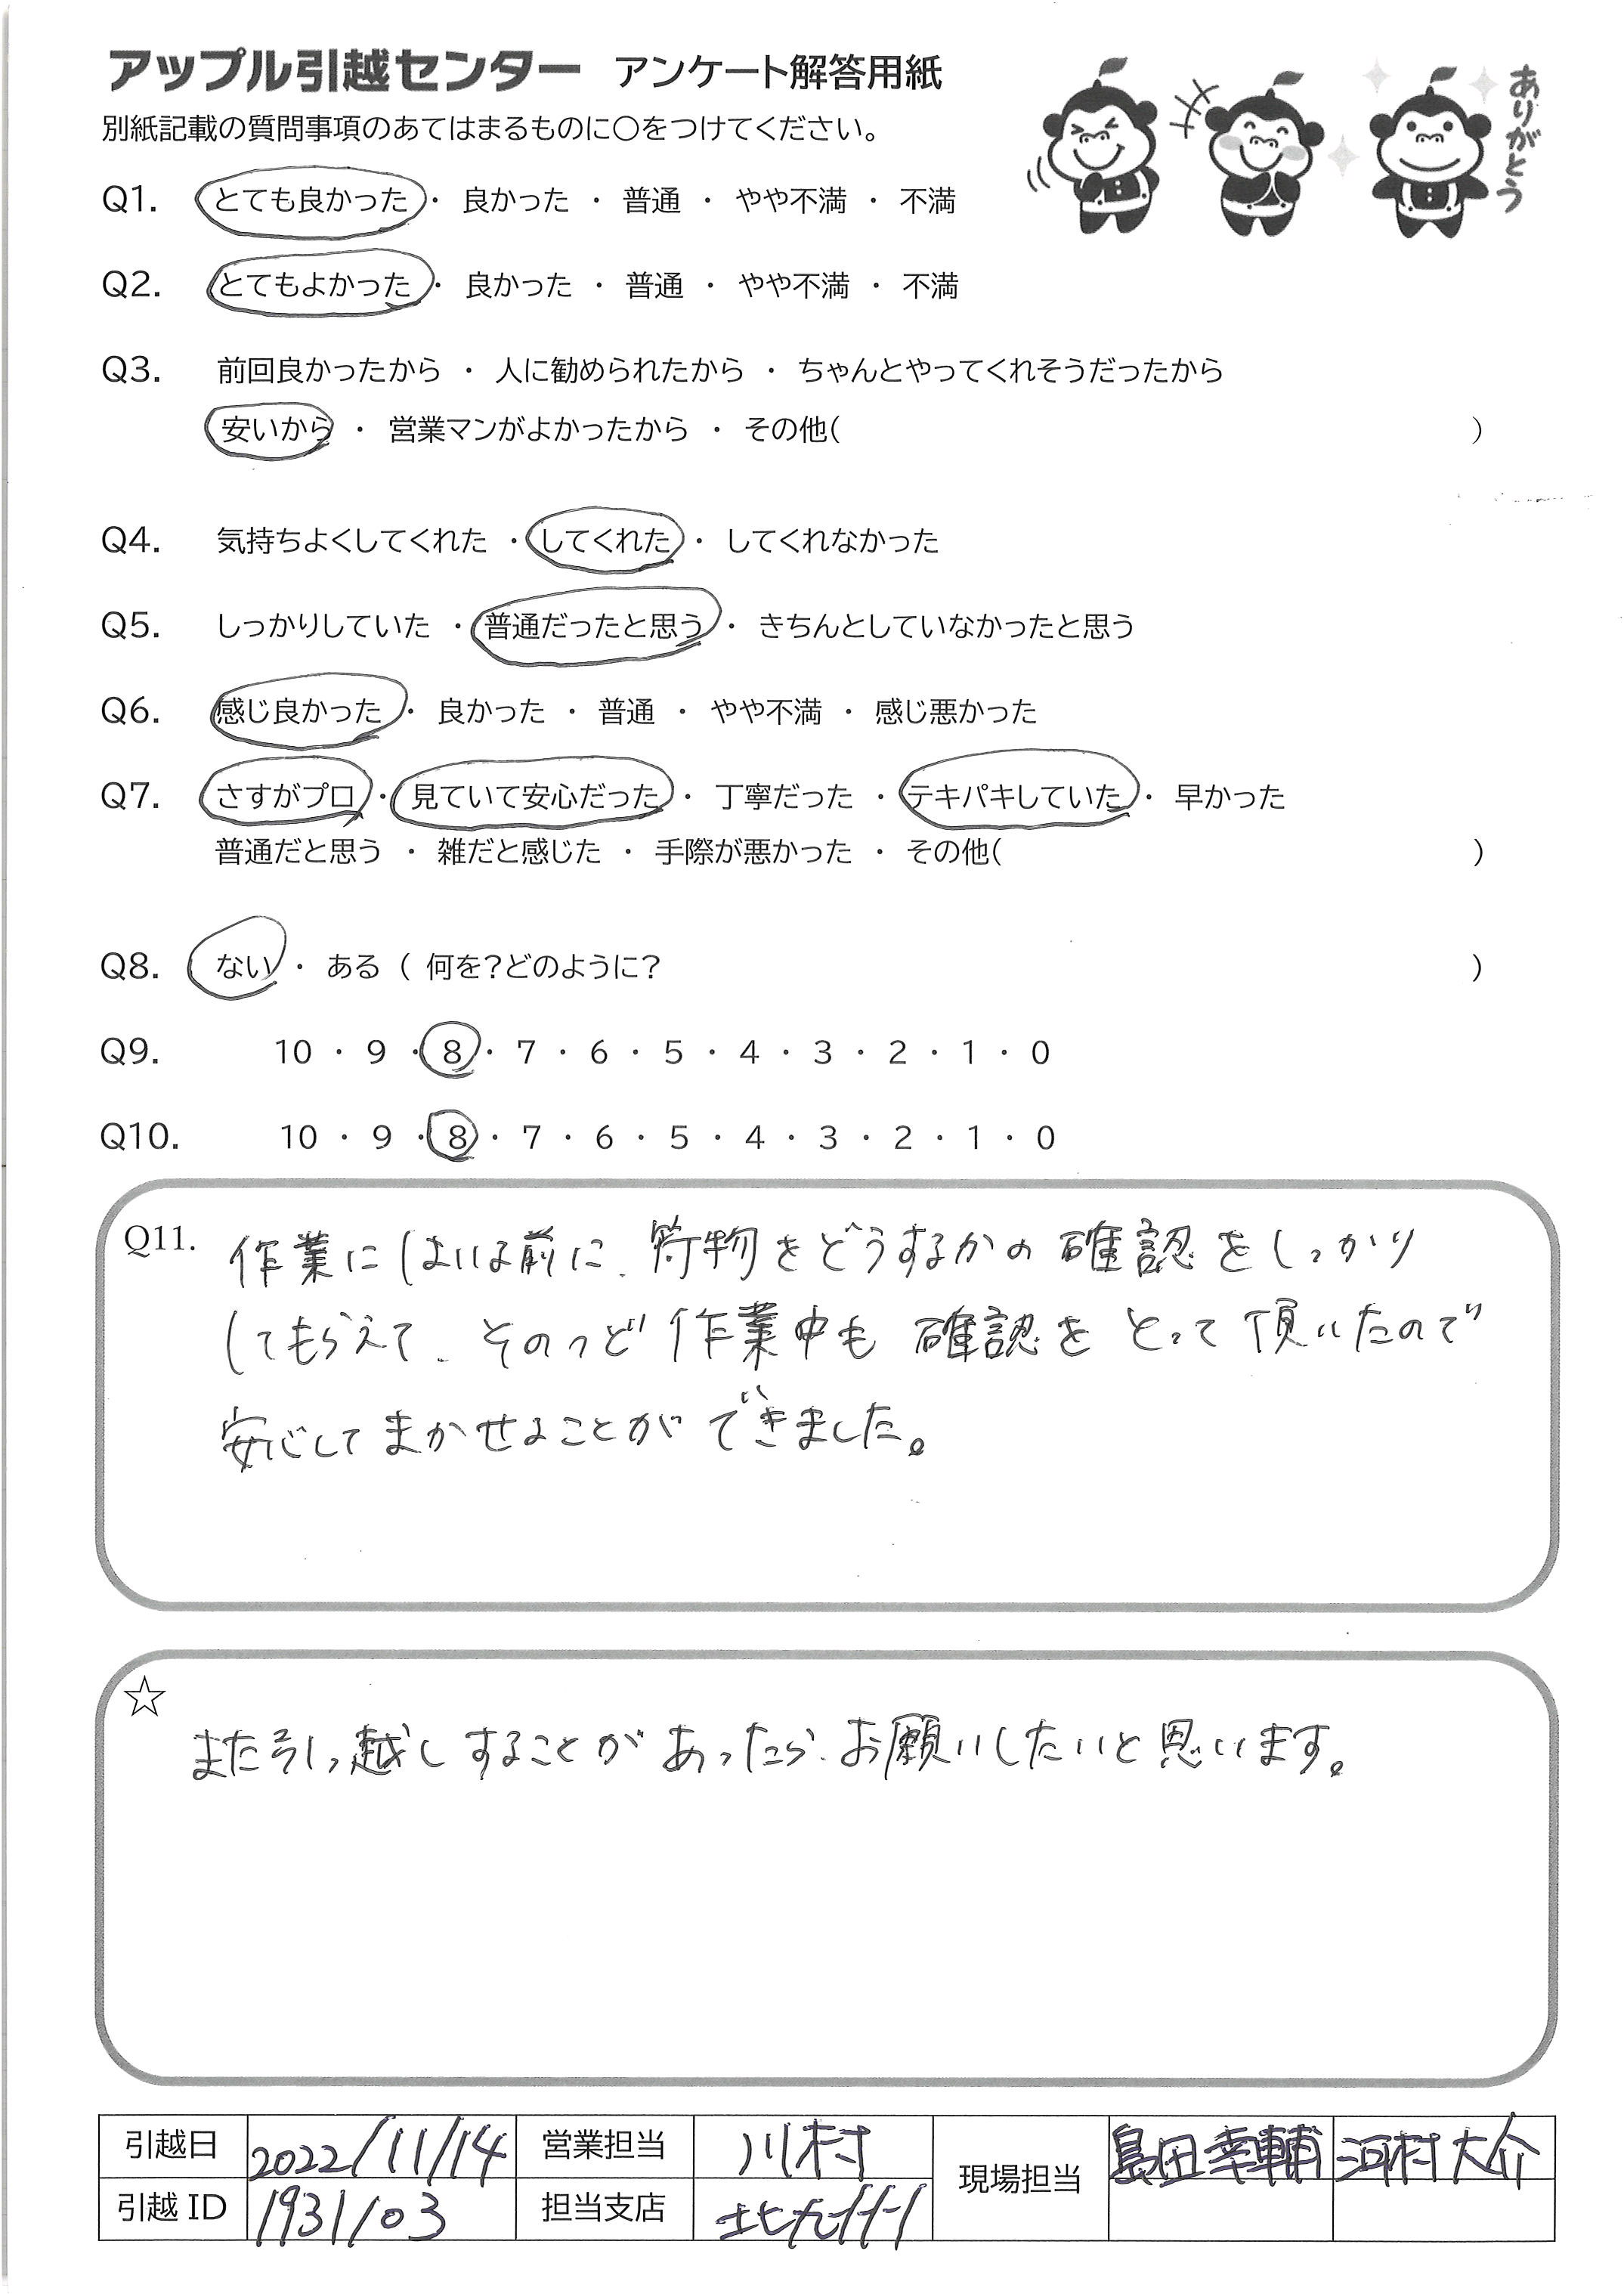 アップル引越センター アンケート解答用紙
ありがとう
別紙記載の質問事項のあてはまるものに〇をつけてください。
Q1. とても良かった ・ 良かった ・ 普通 ・ やや不満 ・ 不満
Q2. とてもよかった ・ 良かった ・ 普通 ・ やや不満 ・ 不満
Q3. 前回良かったから ・ 人に勧められたから ・ ちゃんとやってくれそうだったから
安いから ・ 営業マンがよかったから ・ その他( )
Q4. 気持ちよくしてくれた ・ してくれた ・ してくれなかった
Q5. しっかりしていた ・ 普通だったと思う ・ きちんとしていなかったと思う
Q6. 感じ良かった ・ 良かった ・ 普通 ・ やや不満 ・ 感じ悪かった
Q7. さすがプロ ・ 見ていて安心だった ・ 丁寧だった ・ テキパキしていた ・ 早かった
普通だと思う ・ 雑だと感じた ・ 手際が悪かった ・ その他( )
Q8. ない ・ ある ( 何を?どのように? )
Q9. 10 ・ 9 ・ 8 ・ 7 ・ 6 ・ 5 ・ 4 ・ 3 ・ 2 ・ 1 ・ 0
Q10. 10 ・ 9 ・ 8 ・ 7 ・ 6 ・ 5 ・ 4 ・ 3 ・ 2 ・ 1 ・ 0
Q11. 作業にはいる前に、荷物をどうするかの確認をしっかり
してもらえて、そのつど作業中も確認をとって頂いたので
安心してまかせることができました。
☆
また引っ越しすることがあったら、お願いしたいと思います。
引越日 2022/11/14 営業担当 川村 現場担当 島田幸輔 河村大介
引越ID 1931103 担当支店 北九州